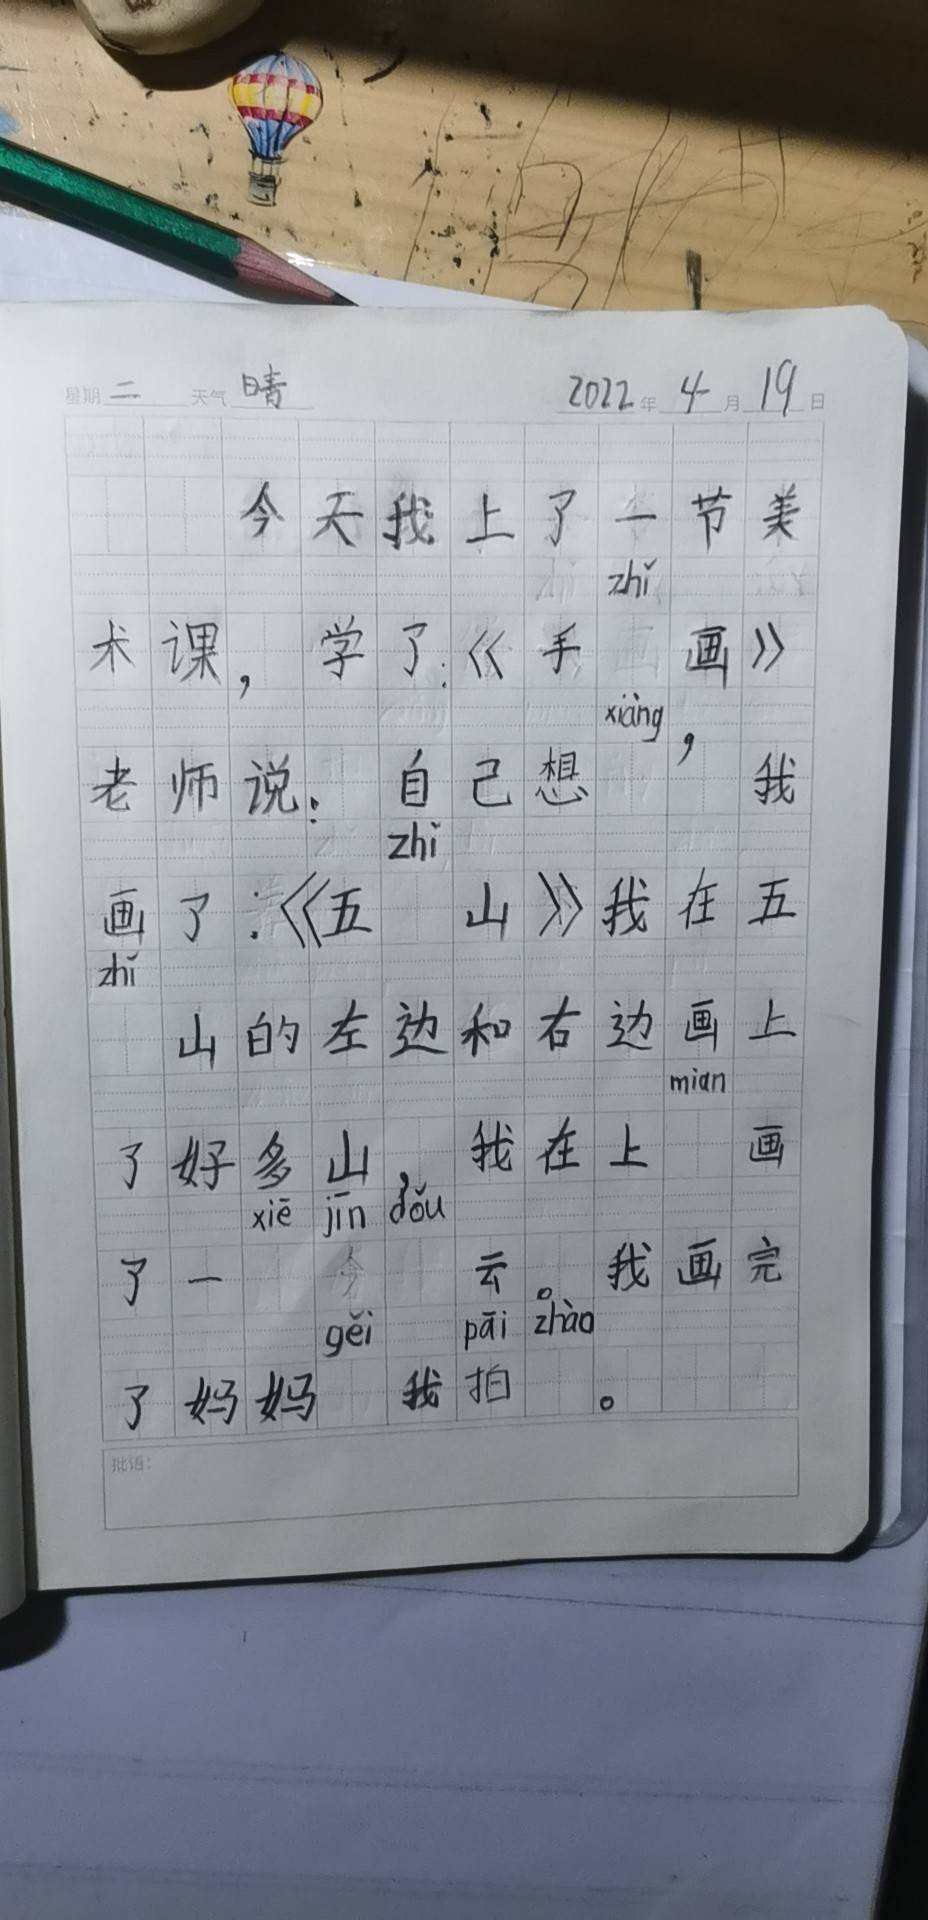 星期 二 天气 晴 2022 年 4 月 19 日
今天我上了一节美
zhǐ
术课，学了:《手 画》
xiǎng
老师说: 自己想 ，我
zhǐ
画了:《五 山》我在五
zhǐ
山的左边和右边画上
mian
了好多山，我在上 画
xiē jīn dǒu
了一 云。我画完
gěi pāi zhào
了妈妈 我拍 。
批语: